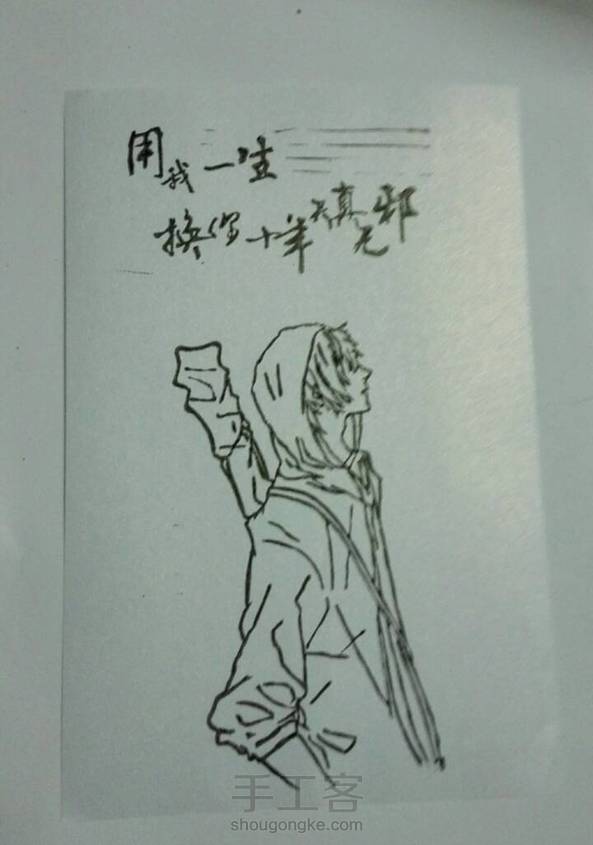 用我一生
换你十年天真无邪
手工客
shougongke.com